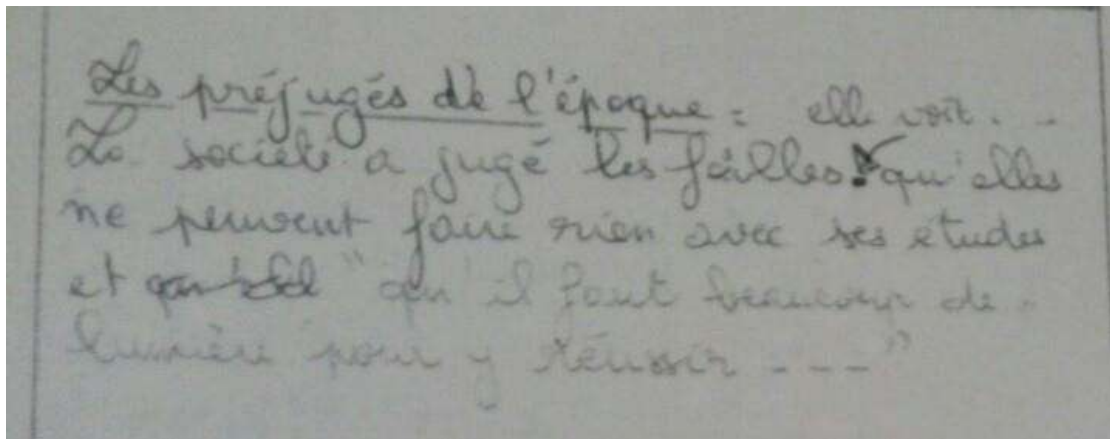 Les préjugés de l'époque : elle voit...
La société a jugé les failles qu'elles
ne peuvent faire rien avec ses études
et "qu'il faut beaucoup de
lumière pour y réussir ---"